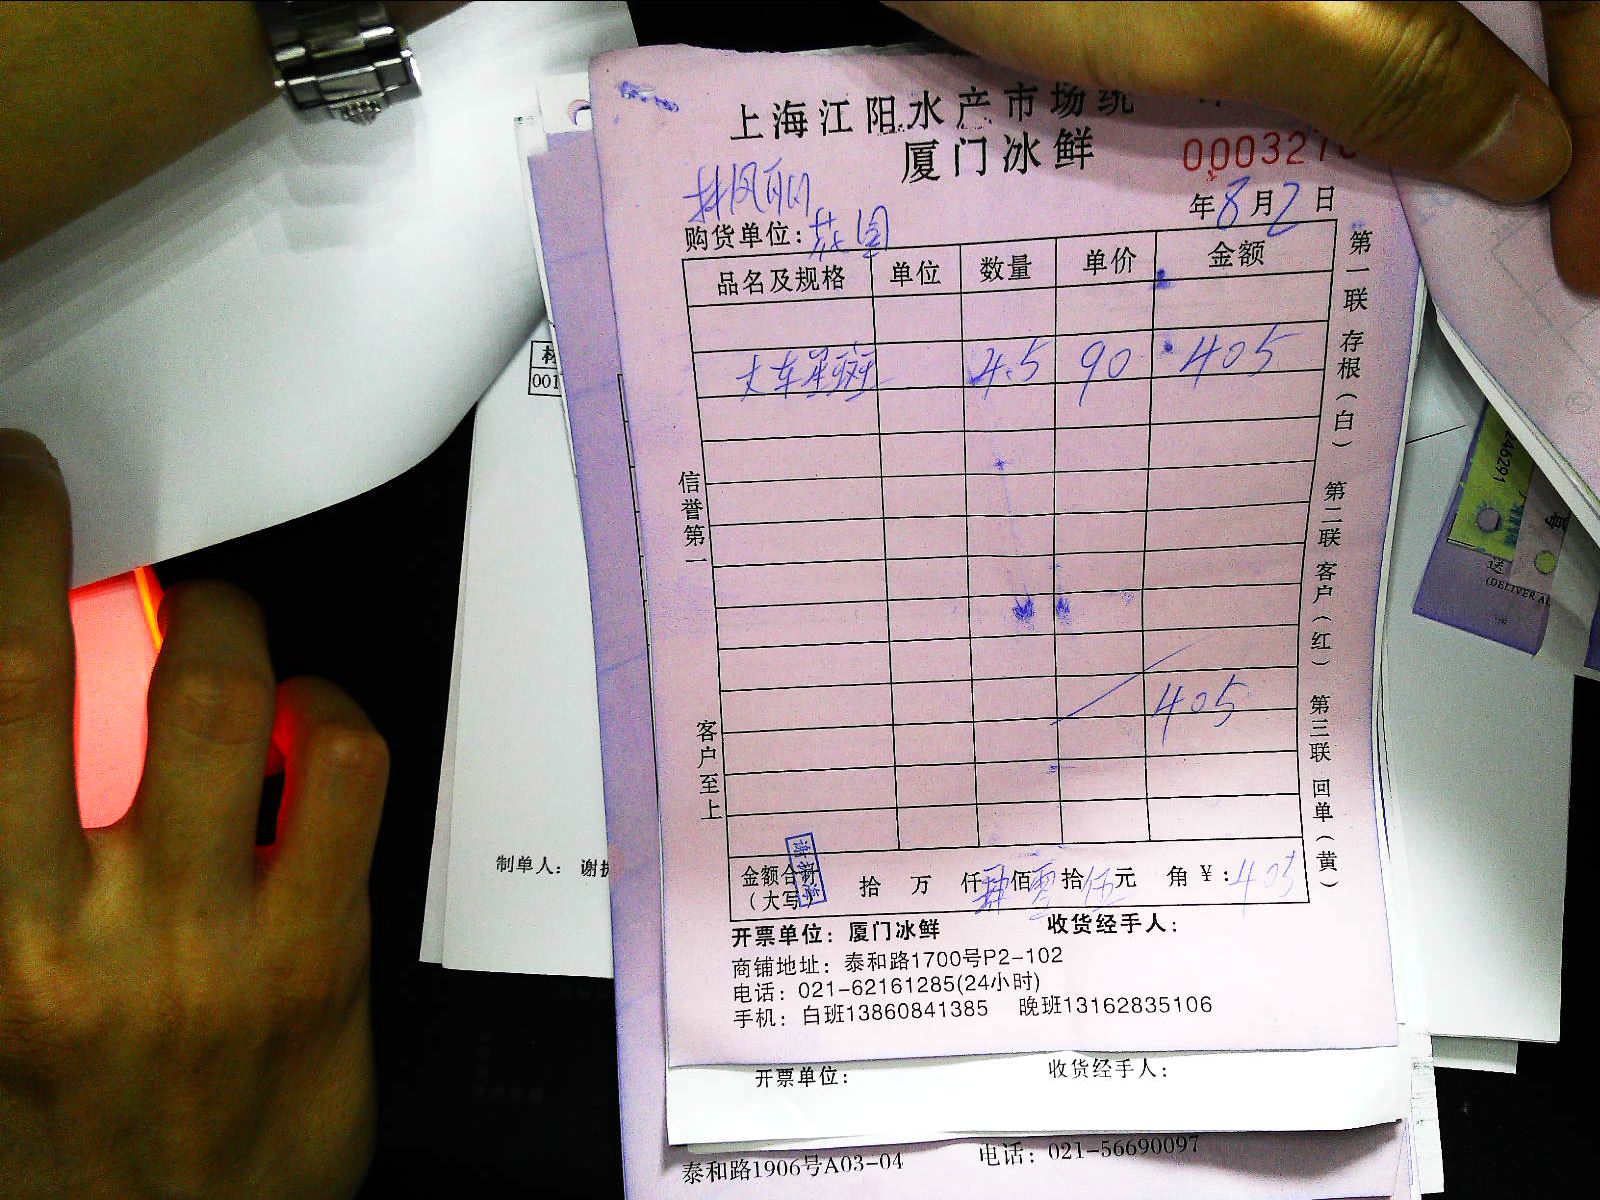 上海江阳水产市场统
厦门冰鲜
000327
年8月2日
购货单位：
品名及规格 单位 数量 单价 金额
大东星斑 4.5 90 405
405
金额合计（大写） 拾 万 仟肆佰零拾伍元 角 ￥：405
开票单位：厦门冰鲜 收货经手人：
商铺地址：泰和路1700号P2-102
电话：021-62161285(24小时)
手机：白班13860841385 晚班13162835106
信誉第一
客户至上
第一联 存根（白） 第二联 客户（红） 第三联 回单（黄）
001
制单人：谢
246291
送
(DELIVER A
开票单位： 收货经手人：
泰和路1906号A03-04 电话：021-56690097